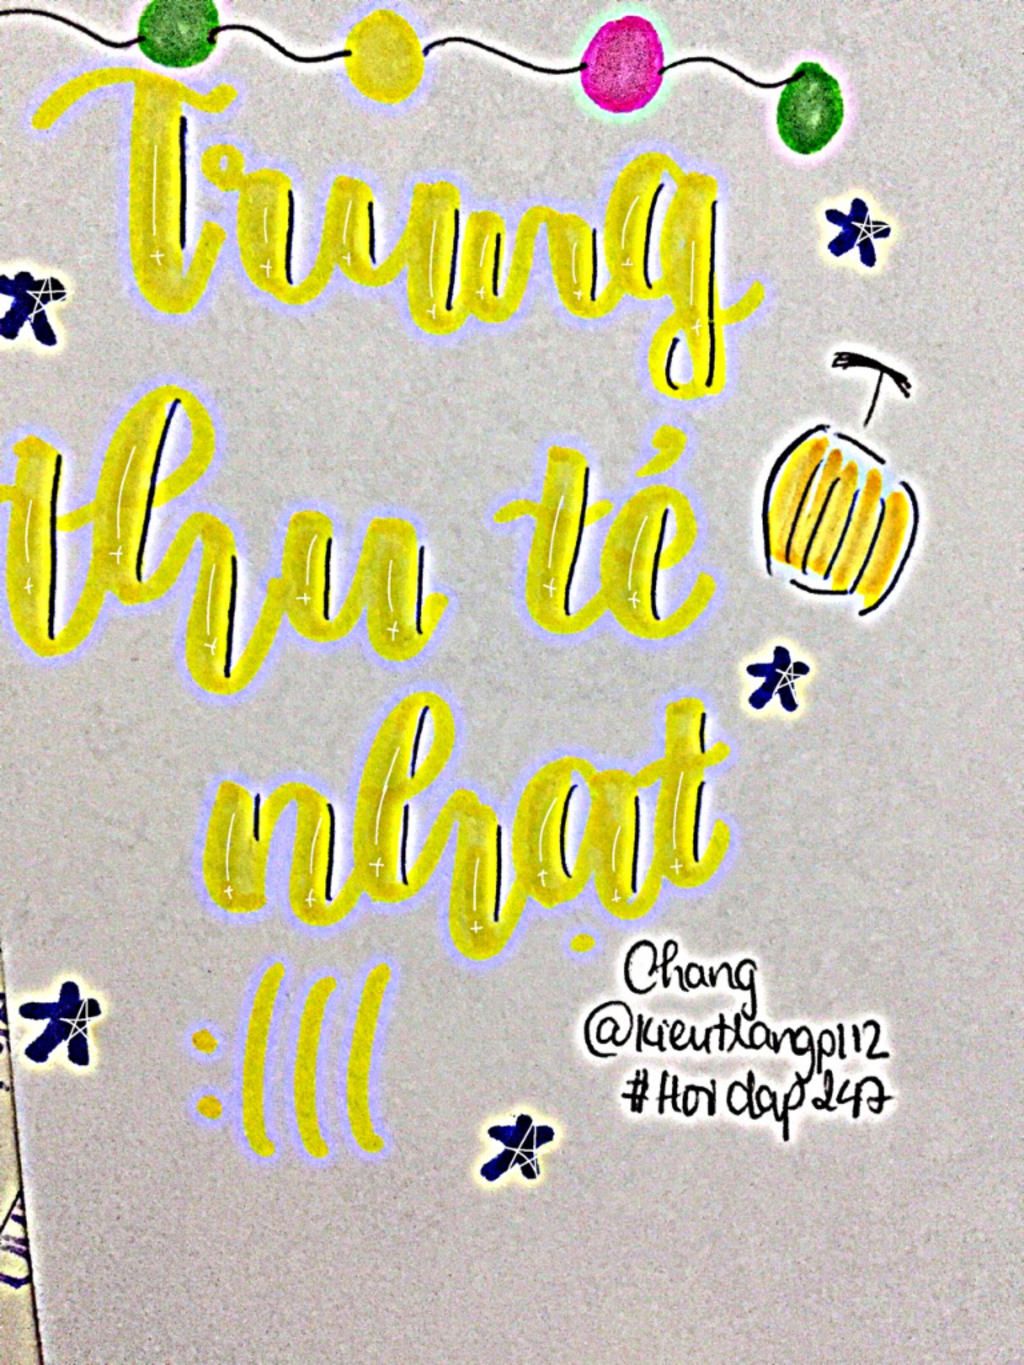 Trung
thu té
nhạt
:(((
Chang
@kieutrangp112
#Hoidap247